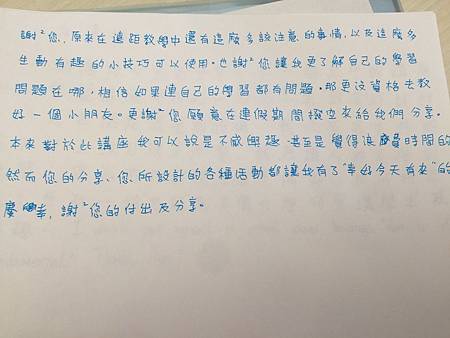 謝²您，原來在遠距教學中還有這麼多該注意的事情，以及這麼多
生動有趣的小技巧可以使用。也謝²您讓我更了解自己的學習
問題在哪，相信如果連自己的學習都有問題，那更沒資格去教
好一個小朋友。更謝²您願意在連假期間撥空來給我們分享。
本來對於此講座我可以說是不感興趣，甚至是覺得浪費時間的
然而您的分享、您所設計的各種活動都讓我有了"幸好今天有來"的
慶幸，謝²您的付出及分享。